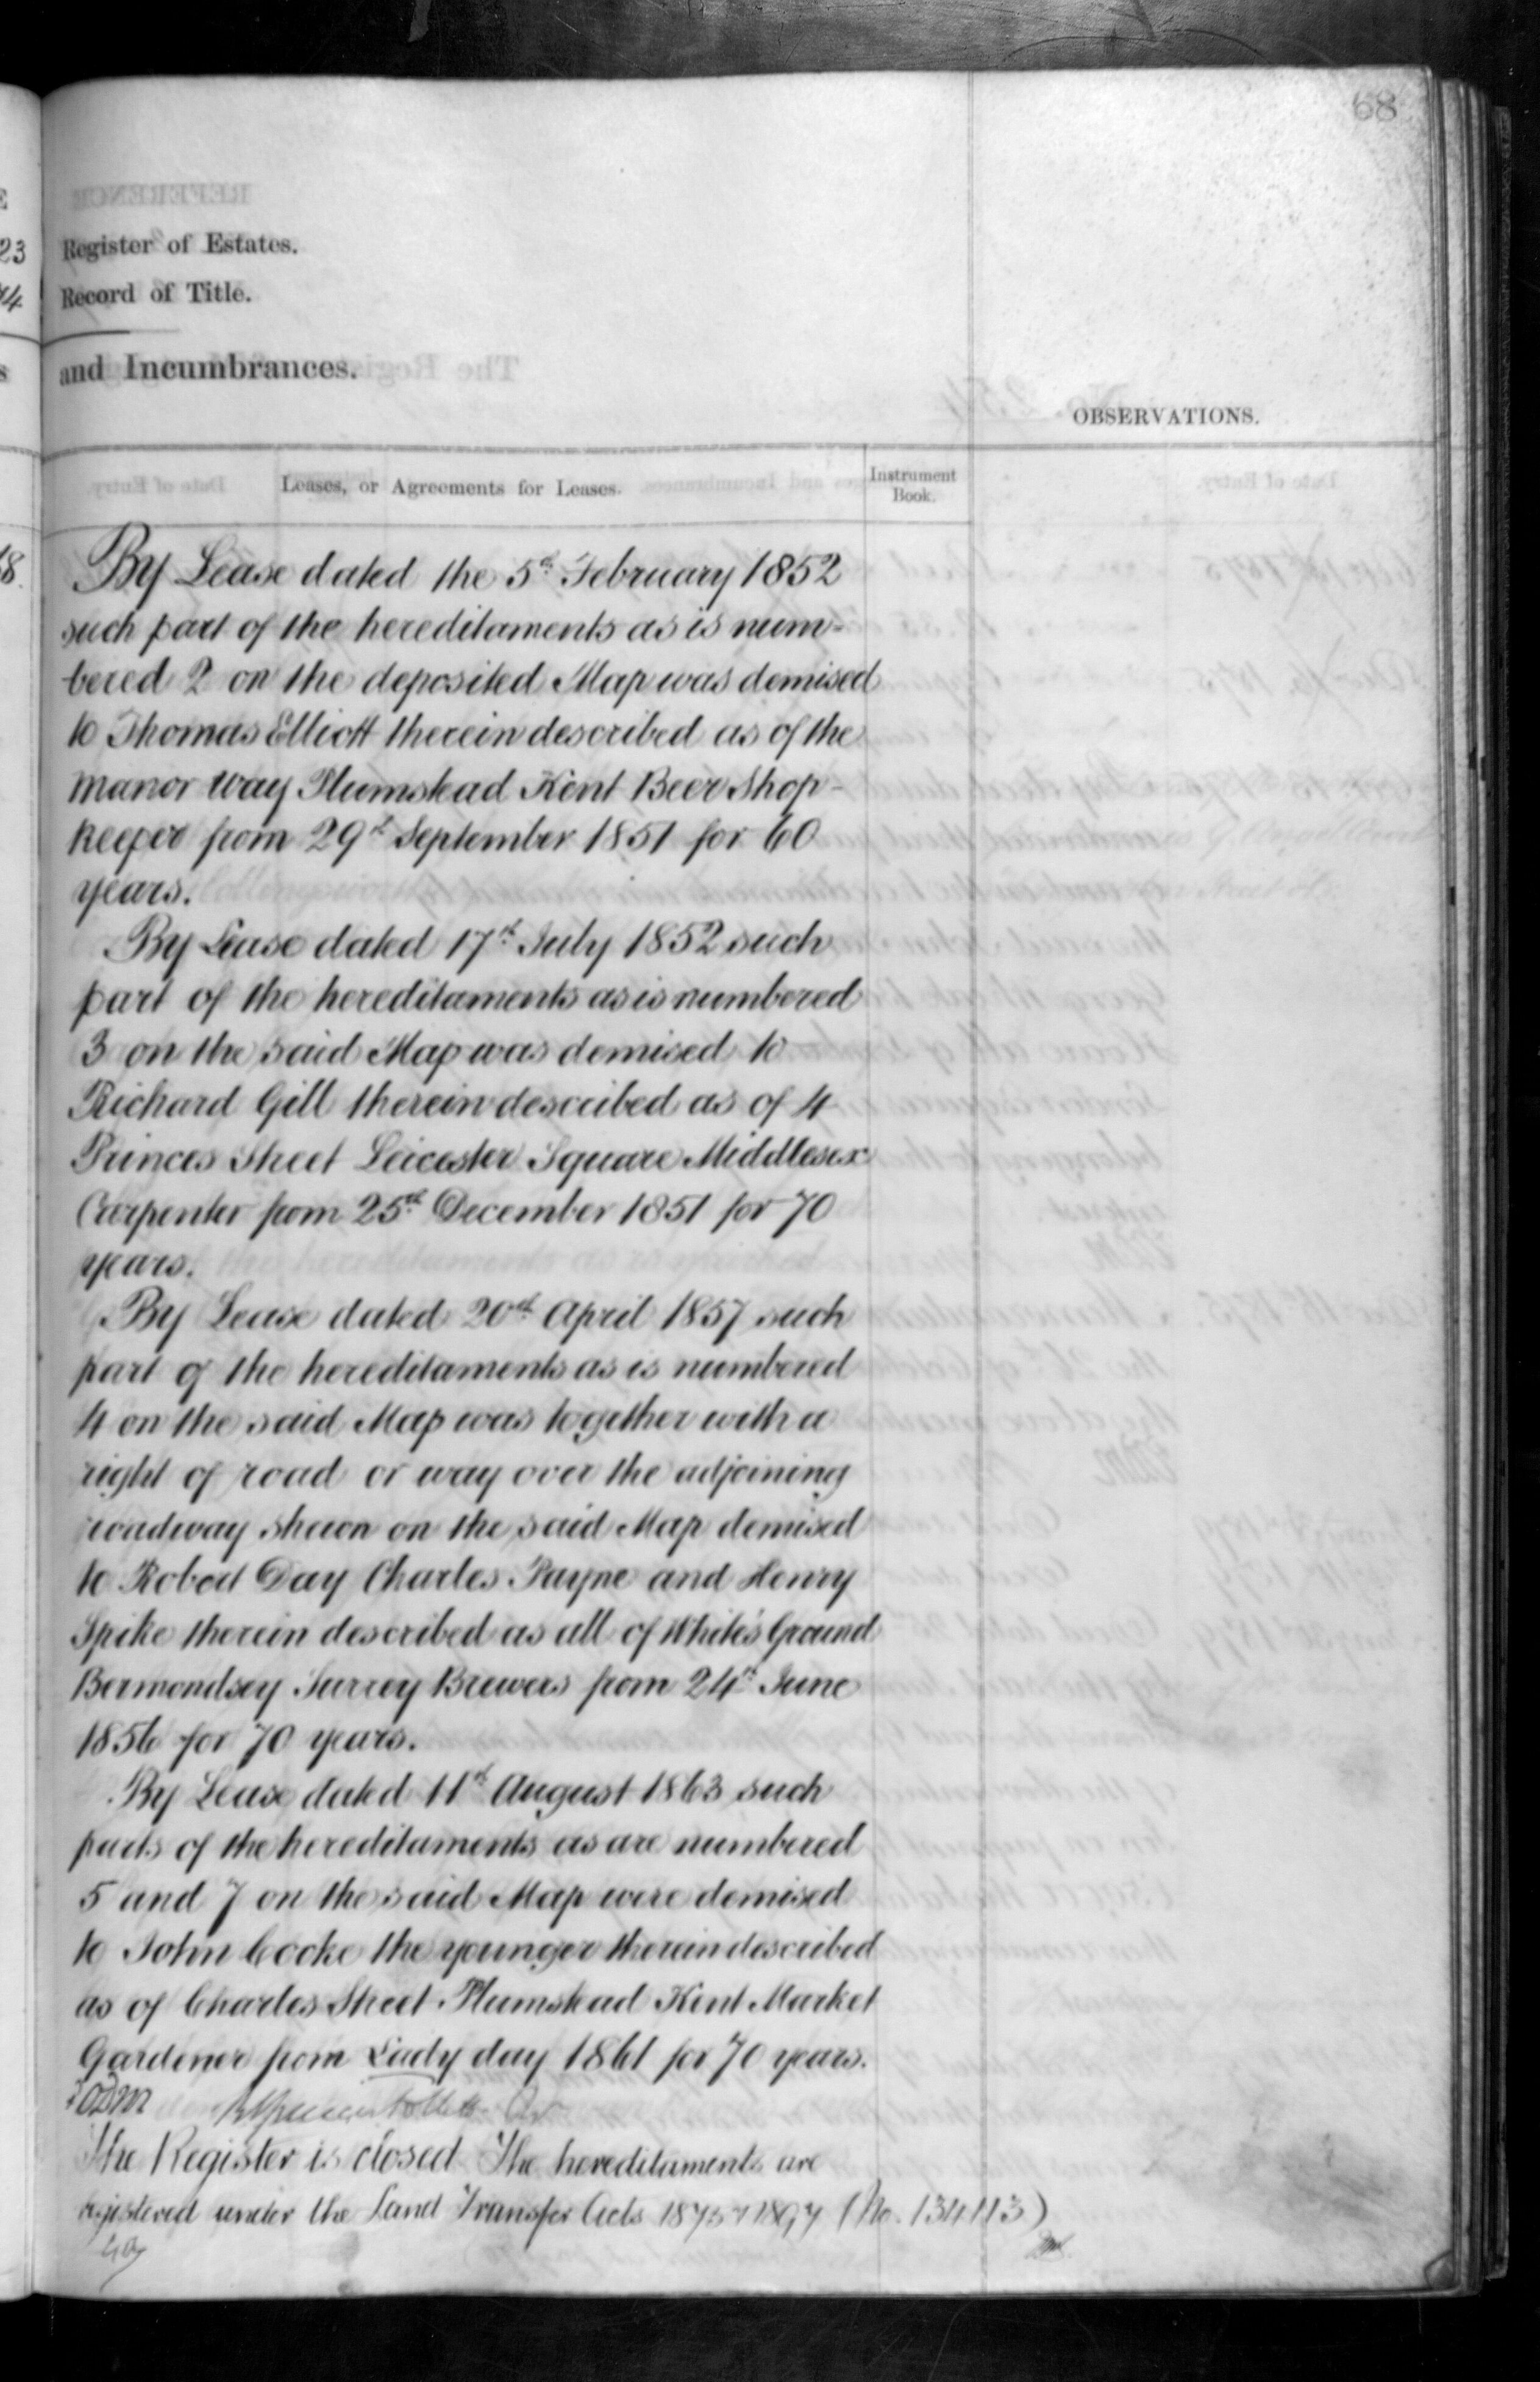 68
Register of Estates.
Record of Title.
and Incumbrances.
OBSERVATIONS.
Leases, or Agreements for Leases.
Instrument
Book.
By Lease dated the 5th February 1852
such part of the hereditaments as is num-
bered 2 on the deposited Map was demised
to Thomas Elliott therein described as of the
Manor Way Plumstead Kent Beer Shop-
keeper from 29th September 1851 for 60
years.
By Lease dated 17th July 1852 such
part of the hereditaments as is numbered
3 on the said Map was demised to
Richard Gill therein described as of 4
Princes Street Leicester Square Middlesex
Carpenter from 25th December 1851 for 70
years.
By Lease dated 20th April 1857 such
part of the hereditaments as is numbered
4 on the said Map was together with a
right of road or way over the adjoining
roadway shewn on the said Map demised
to Robert Day Charles Payne and Henry
Spike therein described as all of White's Ground
Bermondsey Surrey Brewers from 24th June
1856 for 70 years.
By Lease dated 11th August 1863 such
parts of the hereditaments as are numbered
5 and 7 on the said Map were demised
to John Cocke the younger therein described
as of Charles Street Plumstead Kent Market
Gardener from Lady day 1861 for 70 years.
The Register is closed The hereditaments are
registered under the Land Transfer Acts 1875 & 1897 (No. 134113)